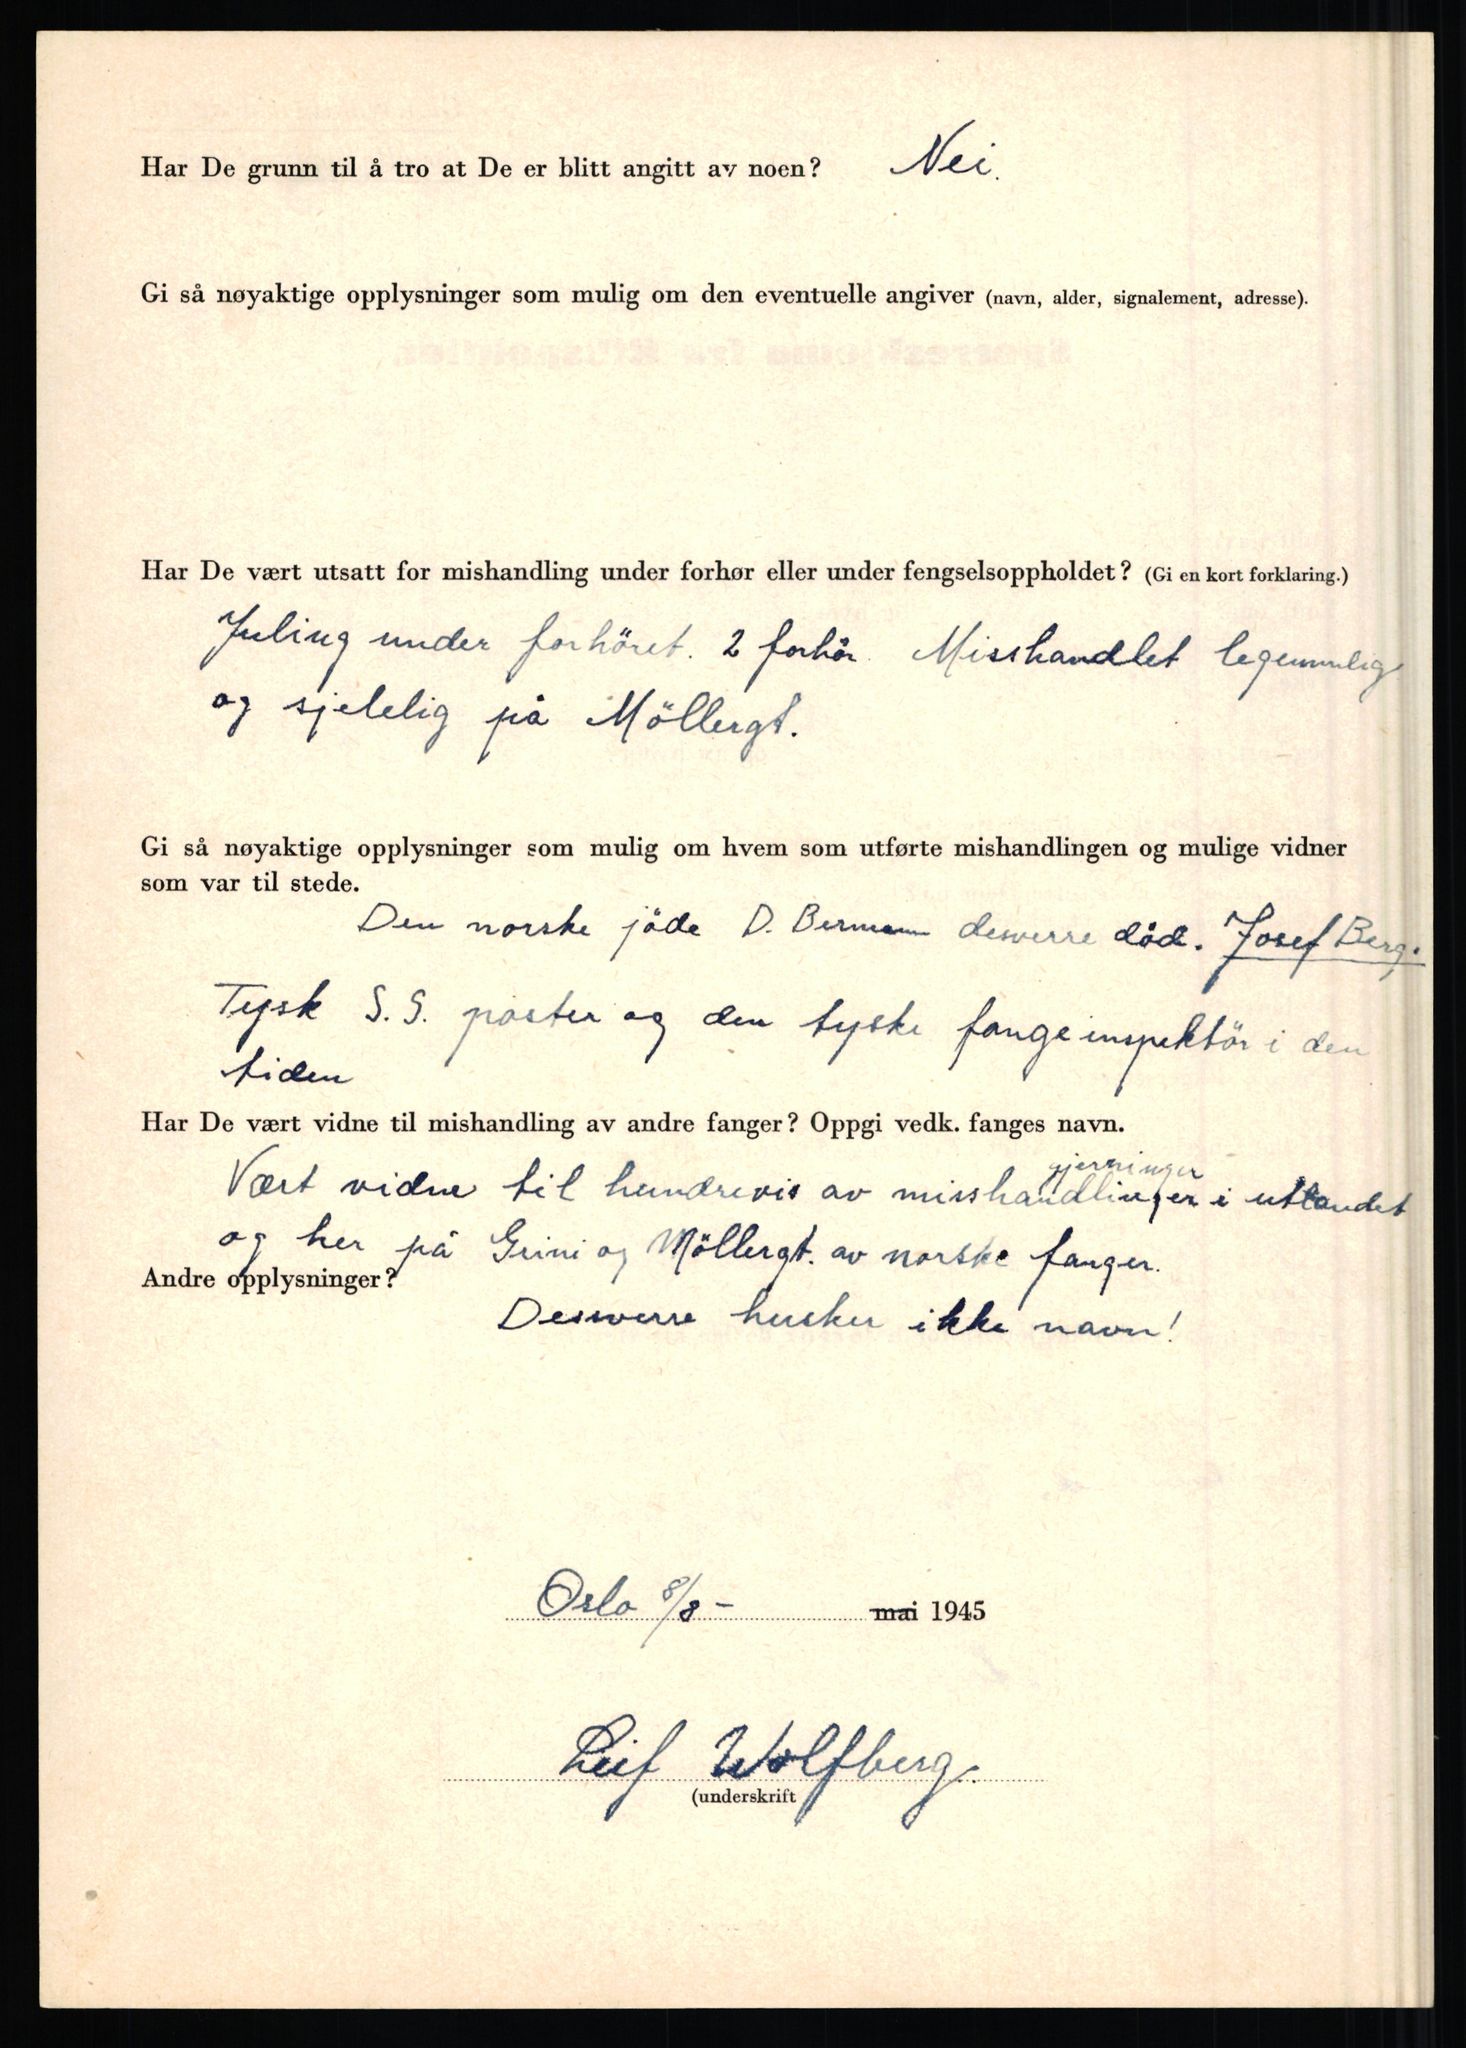 Har De grunn til å tro at De er blitt angitt av noen? Nei.
Gi så nøyaktige opplysninger som mulig om den eventuelle angiver (navn, alder, signalement, adresse).
Har De vært utsatt for mishandling under forhør eller under fengselsoppholdet? (Gi en kort forklaring.)
Juling under forhöret. 2 forhör. Misshandlet legemmlig
og sjelelig på Möllergt.
Gi så nøyaktige opplysninger som mulig om hvem som utførte mishandlingen og mulige vidner
som var til stede.
Den norske jöde D. Bermann desverre död. Josef Berg.
Tysk S.S. poster og den tyske fangeinspektör i den
tiden
Har De vært vidne til mishandling av andre fanger? Oppgi vedk. fanges navn.
gjerninger
Vært vidne til hundrevis av misshandlinger i utlandet
og her på Grini og Möllergt. av norske fanger.
Andre opplysninger?
Desverre husker ikke navn!
Oslo 8/8- mai 1945
Leif Wolfberg.
(underskrift